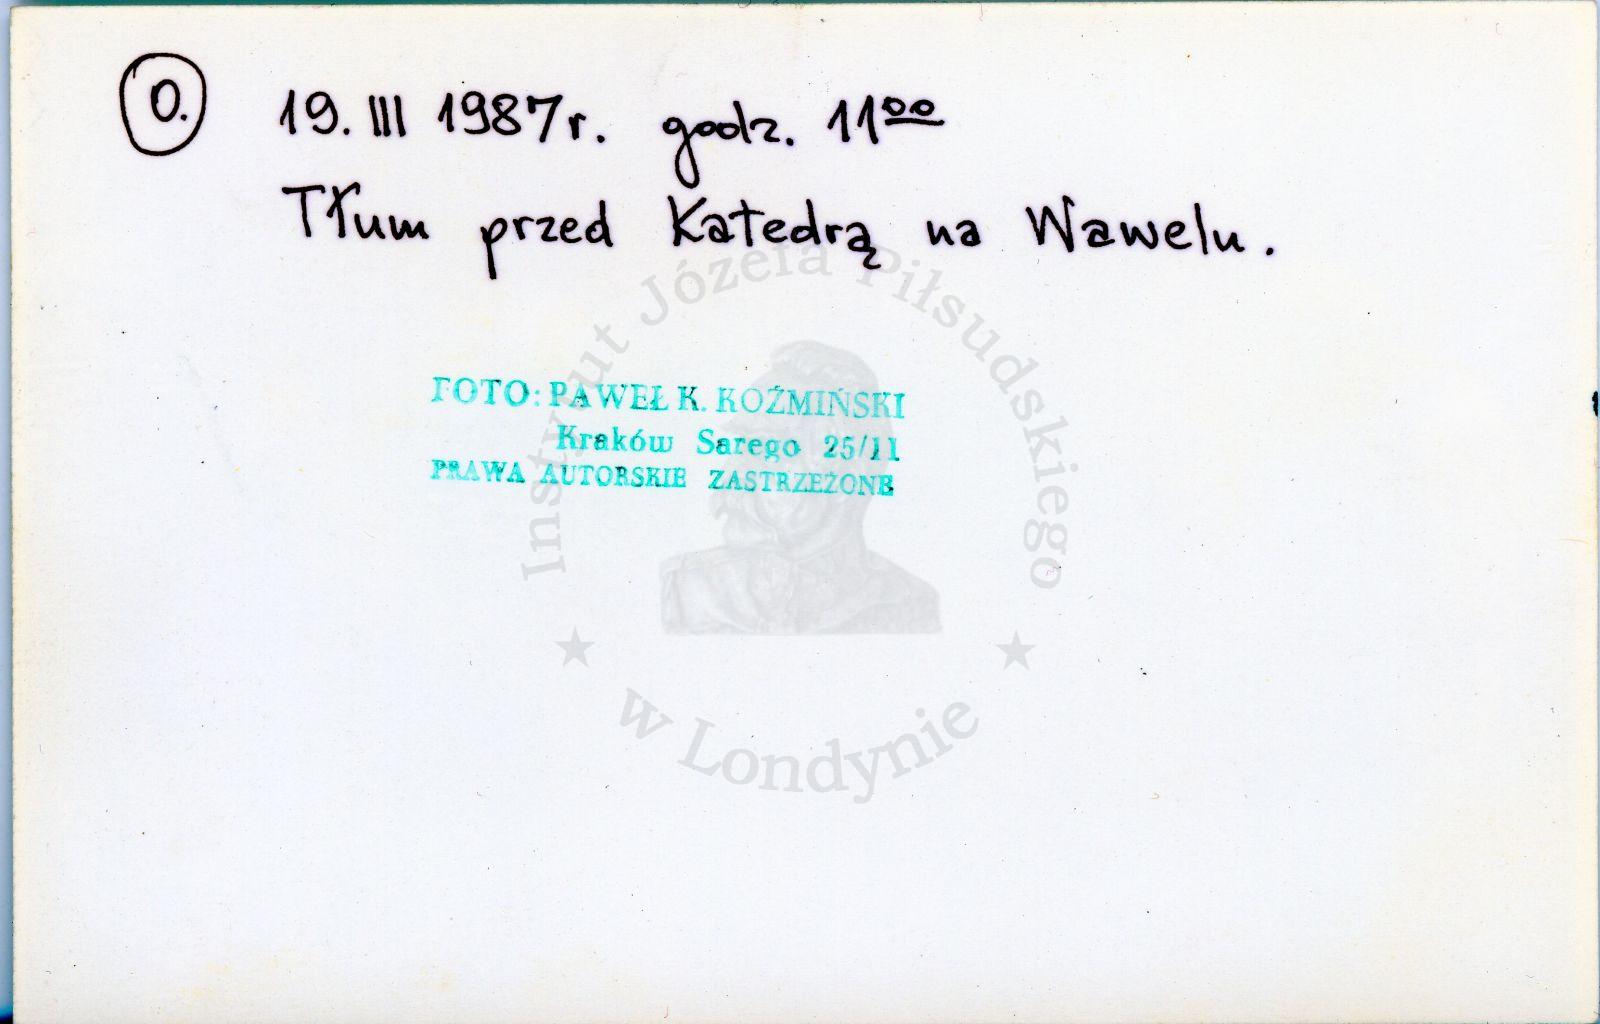 0. 19. III 1987r. godz. 11⁰⁰
Tłum przed Katedrą na Wawelu.
FOTO: PAWEŁ K. KOŹMIŃSKI
Kraków Sarego 25/11
PRAWA AUTORSKIE ZASTRZEŻONE
Instytut Józefa Piłsudskiego
w Londynie